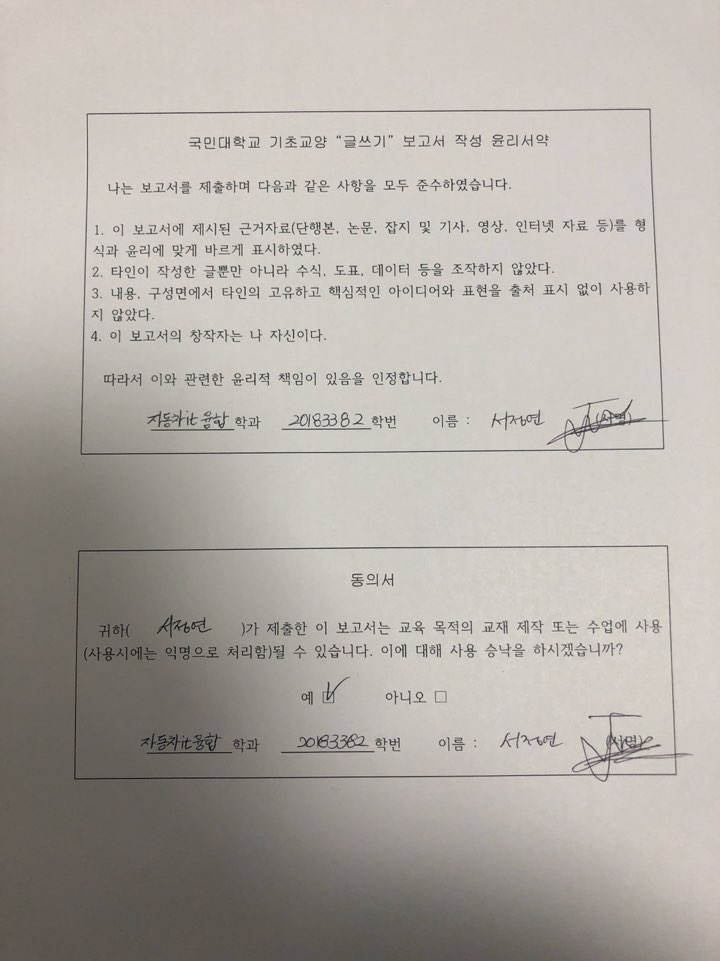 국민대학교 기초교양 “글쓰기” 보고서 작성 윤리서약
나는 보고서를 제출하며 다음과 같은 사항을 모두 준수하였습니다.
1. 이 보고서에 제시된 근거자료(단행본, 논문, 잡지 및 기사, 영상, 인터넷 자료 등)를 형
식과 윤리에 맞게 바르게 표시하였다.
2. 타인이 작성한 글뿐만 아니라 수식, 도표, 데이터 등을 조작하지 않았다.
3. 내용, 구성면에서 타인의 고유하고 핵심적인 아이디어와 표현을 출처 표시 없이 사용하
지 않았다.
4. 이 보고서의 창작자는 나 자신이다.
따라서 이와 관련한 윤리적 책임이 있음을 인정합니다.
자동차it융합 학과 20183382 학번 이름 : 서정연 (서명)
동의서
귀하( 서정연 )가 제출한 이 보고서는 교육 목적의 교재 제작 또는 수업에 사용
(사용시에는 익명으로 처리함)될 수 있습니다. 이에 대해 사용 승낙을 하시겠습니까?
예 ☑ 아니오 □
자동차it융합 학과 20183382 학번 이름 : 서정연 (서명)